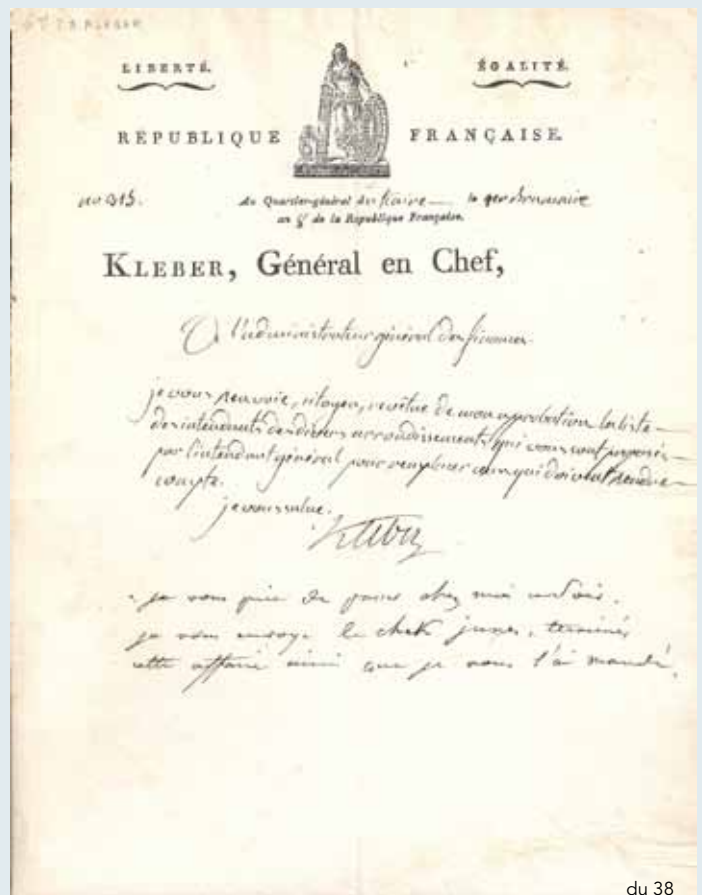 GT. KLEBER
LIBERTÉ. ÉGALITÉ.
RÉPUBLIQUE FRANÇAISE.
no 315. Au Quartier-général du Kaire le 1er brumaire
an 8 de la République Française.
KLEBER, Général en Chef,
A l'administrateur général des finances
je vous renvoie, citoyen, revêtue de mon aprobation la liste
des intendants des divers arrondissements qui vous sont proposés
par l'intendant général pour remplacer ceux qui doivent rendre
compte.
je vous salue.
Kleber
je vous prie de passer chez moi ce soir.
je vous envoye le chek , terminés
cette affaire ainsi que je vous l'ai mandé.
du 38